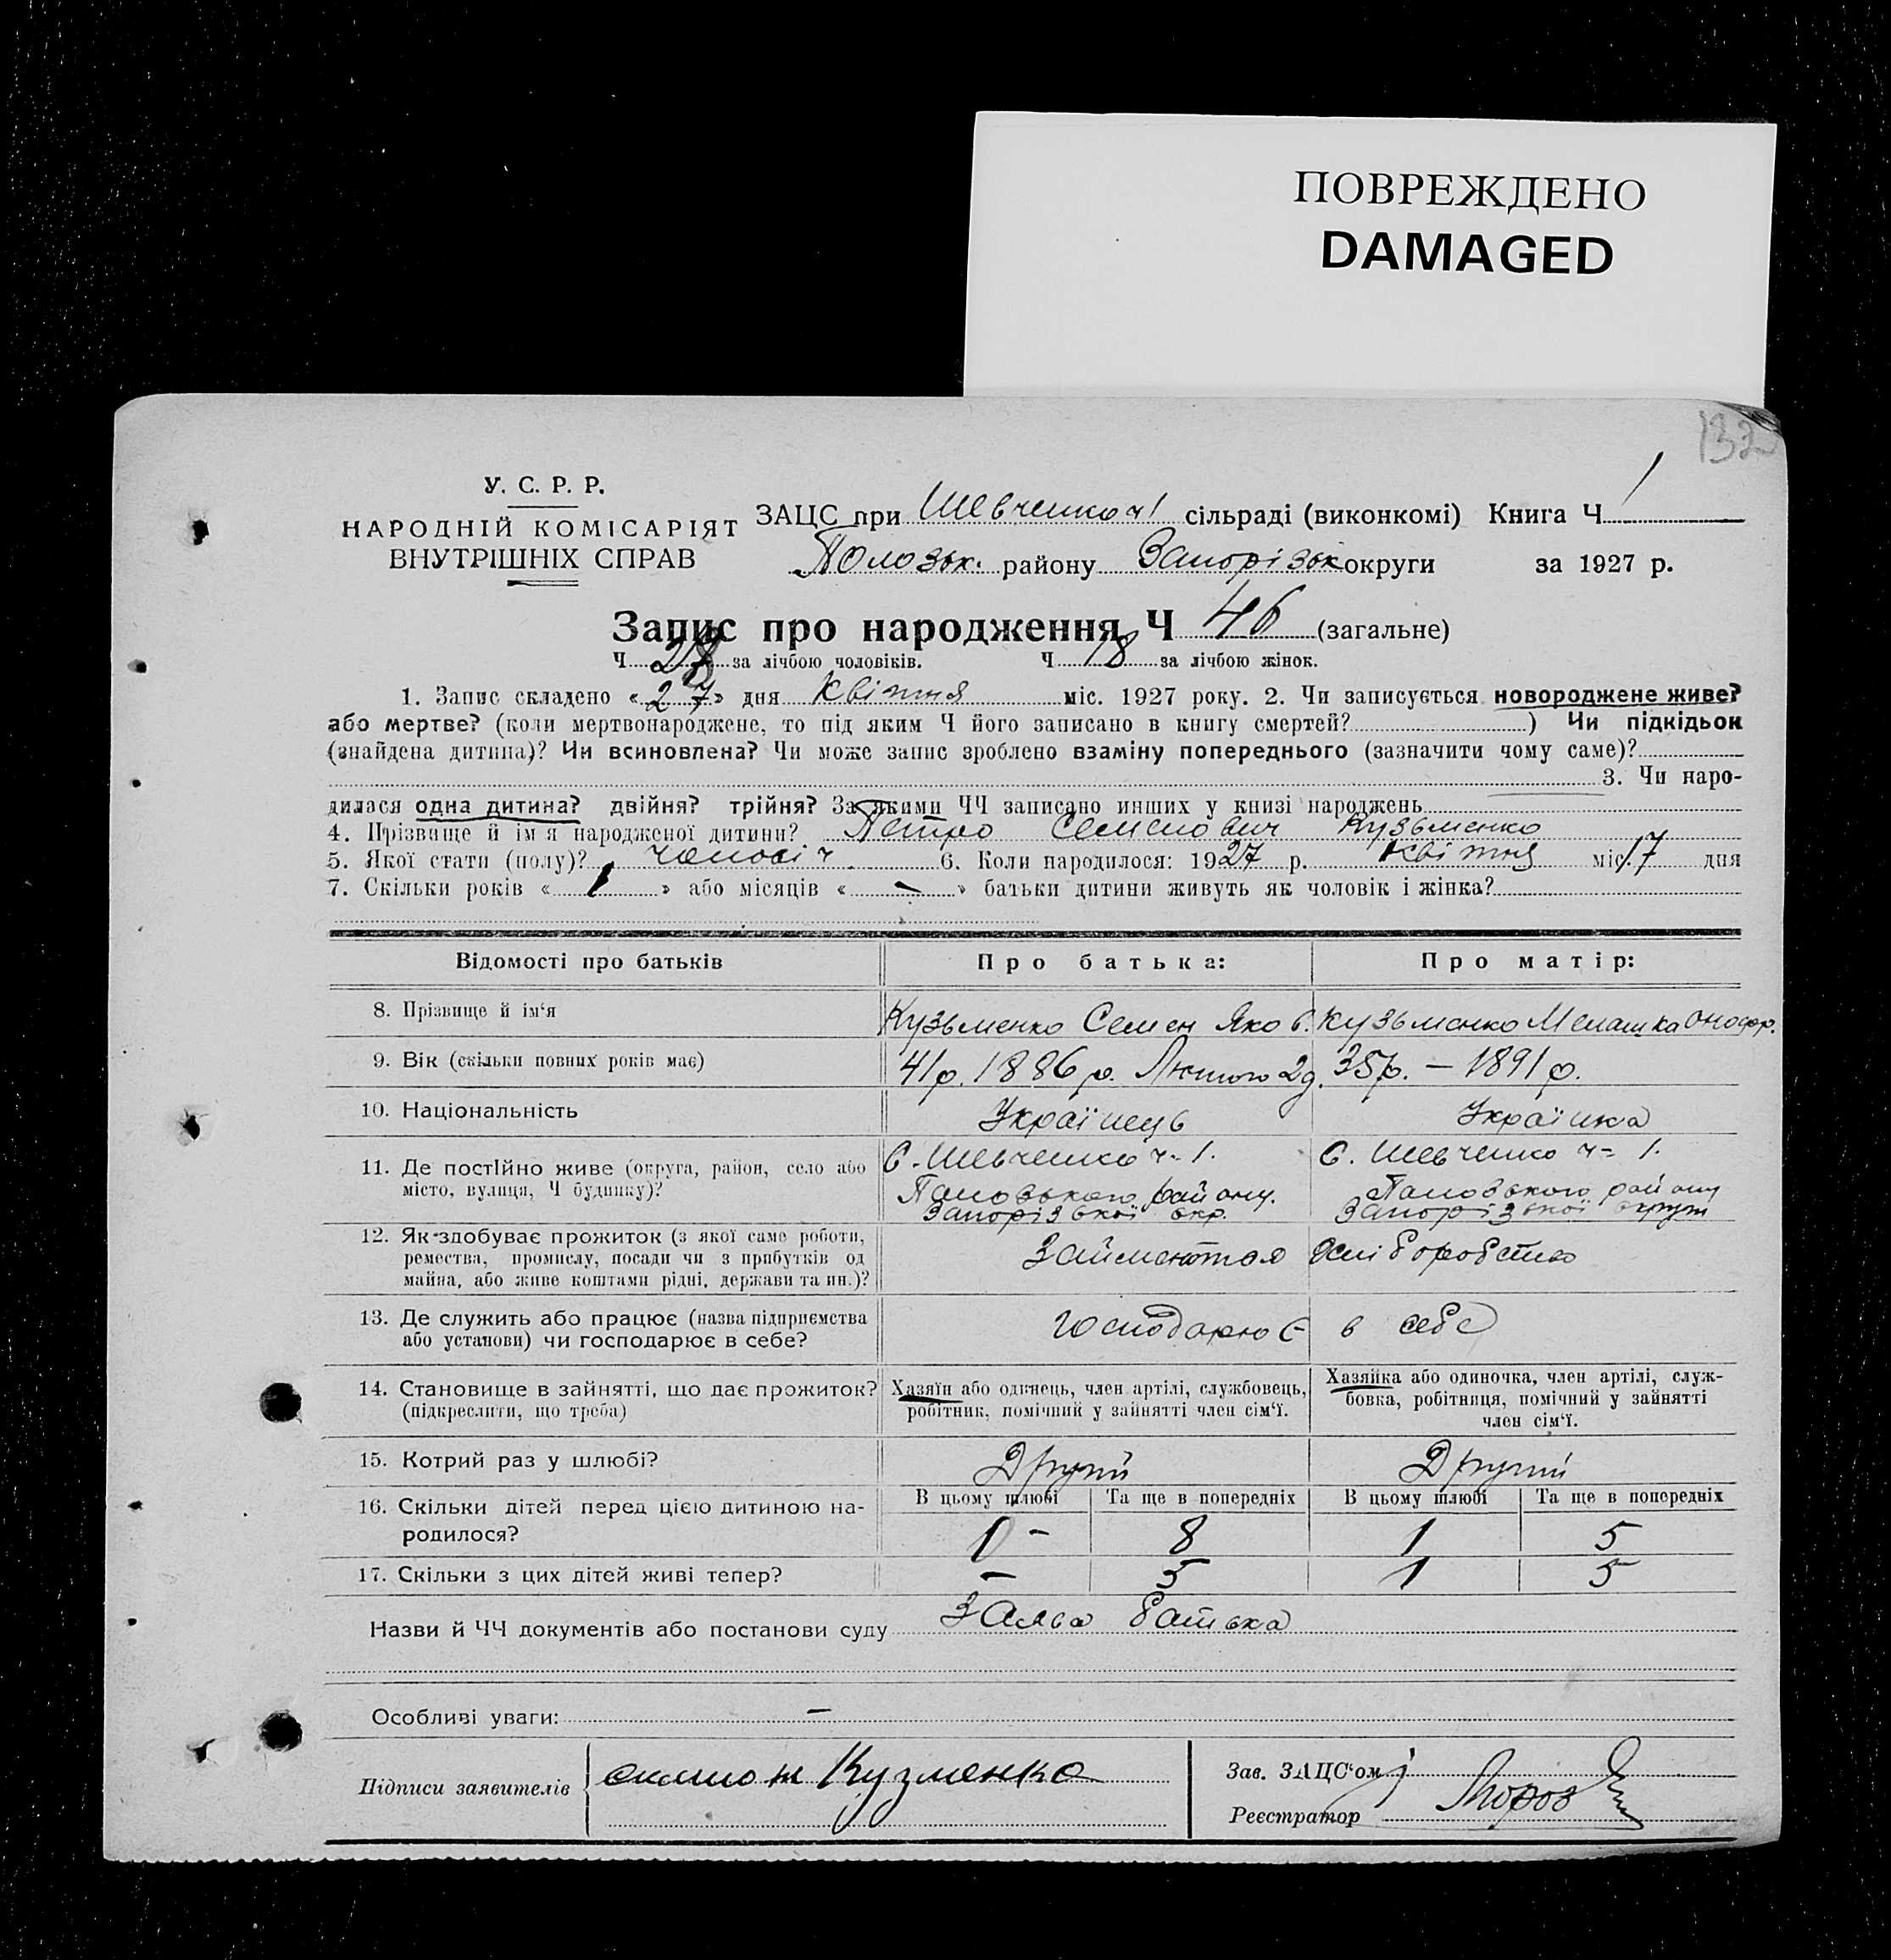 ПОВРЕЖДЕНО
DAMAGED
132
У. С. Р. Р.
НАРОДНІЙ КОМІСАРІЯТ
ВНУТРІШНІХ СПРАВ
ЗАЦС при Шевченко ч1 сільраді (виконкомі) Книга Ч 1
Полозьк. району Запорізьк округи за 1927 р.
Запис про народження Ч 46 (загальне)
Ч 28 за лічбою чоловіків. Ч 18 за лічбою жінок.
1. Запис складено «27» дня квітня міс. 1927 року. 2. Чи записується новороджене живе?
або мертве? (коли мертвонароджене, то під яким Ч його записано в книгу смертей? ) Чи підкідьок
(знайдена дитина)? Чи всиновлена? Чи може запис зроблено взаміну попереднього (зазначити чому саме)?
3. Чи наро-
дилася одна дитина? двійня? трійня? За якими ЧЧ записано инших у книзі народжень
4. Прізвище й ім'я народженої дитини? Петро Семенович Кузьменко
5. Якої стати (полу)? чоловіч 6. Коли народилося: 1927 р. квітня міс. 17 дня
7. Скільки років « 1 » або місяців « - » батьки дитини живуть як чоловік і жінка?
Відомості про батьків Про батька: Про матір:
8. Прізвище й ім'я Кузьменко Семен Яков. Кузьменко Мелашка Онофр.
9. Вік (скільки повних років має) 41р. 1886 р. Лютого 2д. 35р. — 1891 р.
10. Національність Українець Українка
11. Де постійно живе (округа, район, село або місто, вулиця, Ч будинку)? С. Шевченко ч-1. С. Шевченко ч- 1.
району. району
Запорізької окр. Запорізької округи
12. Як здобуває прожиток (з якої саме роботи,
ремества, промислу, посади чи з прибутків од
майна, або живе коштами рідні, держави та ин.)? Займаються
13. Де служить або працює (назва підприємства
або установи) чи господарює в себе? господарює в себе
14. Становище в зайнятті, що дає прожиток?
(підкреслити, що треба)
Хазяїн або одинець, член артілі, службовець,
робітник, помічний у зайнятті член сім'ї.
Хазяйка або одиночка, член артілі, служ-
бовка, робітниця, помічний у зайнятті
член сім'ї.
15. Котрий раз у шлюбі? Другий Другий
В цьому шлюбі Та ще в попередніх В цьому шлюбі Та ще в попередніх
16. Скільки дітей перед цією дитиною на-
родилося? - 8 1 5
17. Скільки з цих дітей живі тепер? - 5 1 5
Назви й ЧЧ документів або постанови суду Заява батька
Особливі уваги: -
Підписи заявителів Кузменко
Зав. ЗАЦС'ом
Реєстратор